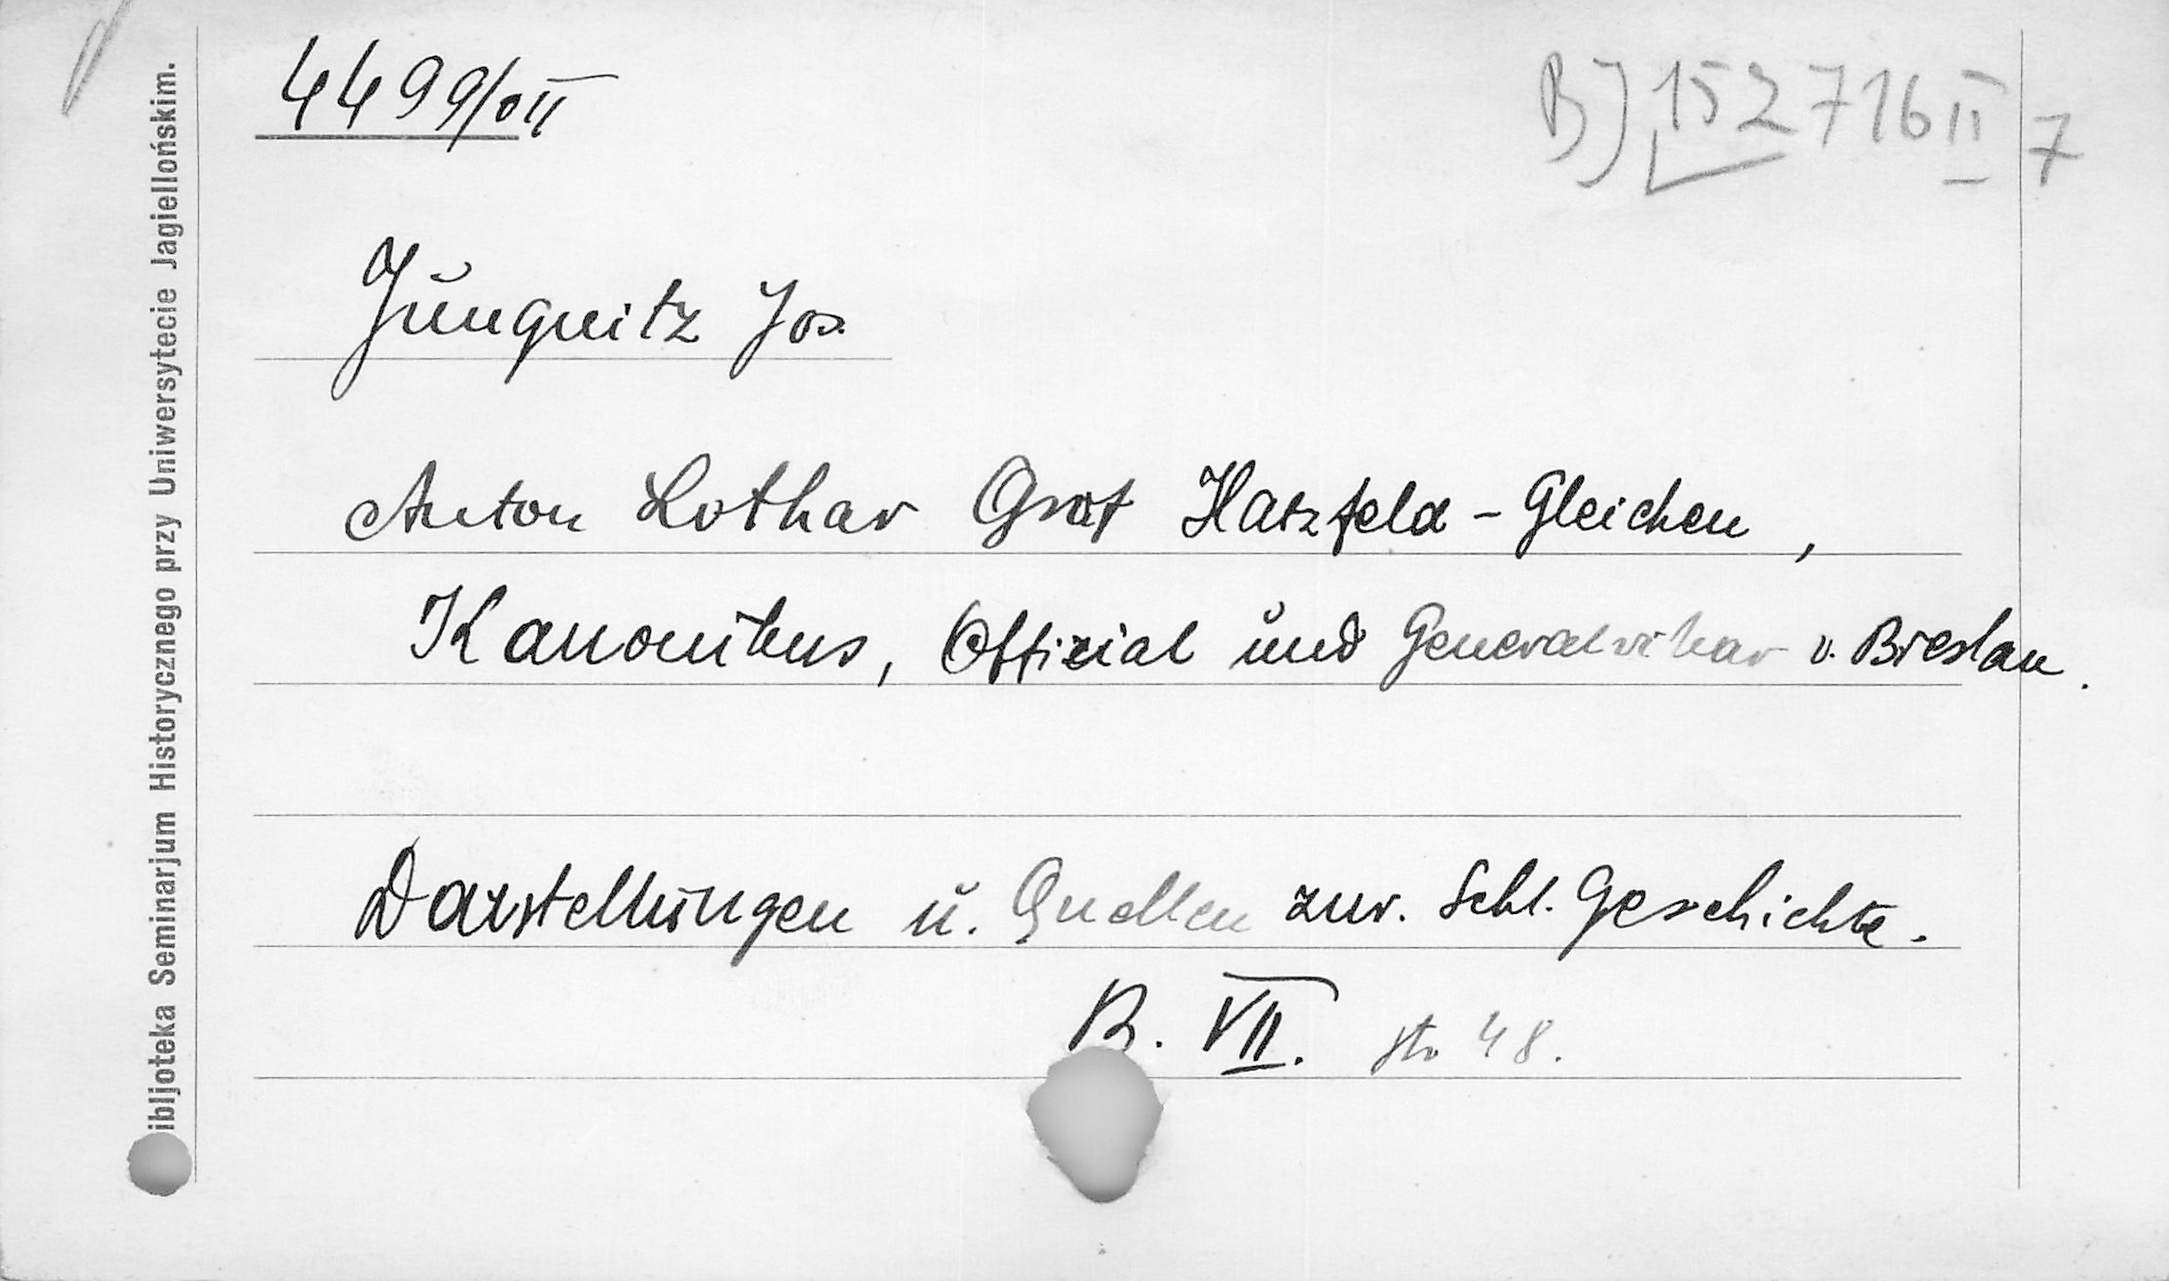 4499/VII
BJ 152716 II 7
Jŭngnitz Jos.
Anton Lothar Graf Hatzfeld - Gleichen,
Kanonikus, Offizial ŭnd Generalvikar v. Breslau.
Darstellŭngen ŭ. Quellen zur. Schl. Geschichte.
B. VII. str 48.
ibljoteka Seminarjum Historycznego przy Uniwersytecie Jagiellońskim.